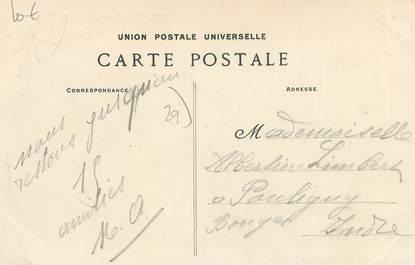 10 €
UNION POSTALE UNIVERSELLE
CARTE POSTALE
CORRESPONDANCE
ADRESSE
29)
nous
restons jusqu'au
15
amitiés
M. A.
Mademoiselle
Limbert
a Pouligny
Indre